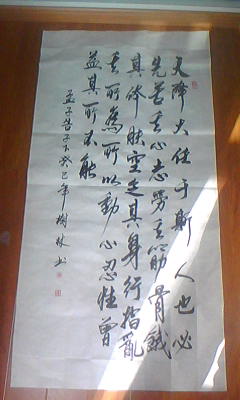 天降大任于斯人也必
先苦其心志劳其筋骨饿
其体肤空乏其身行指乱
其所为所以动心忍性曾
益其所不能
孟子告子下癸巳年树林书